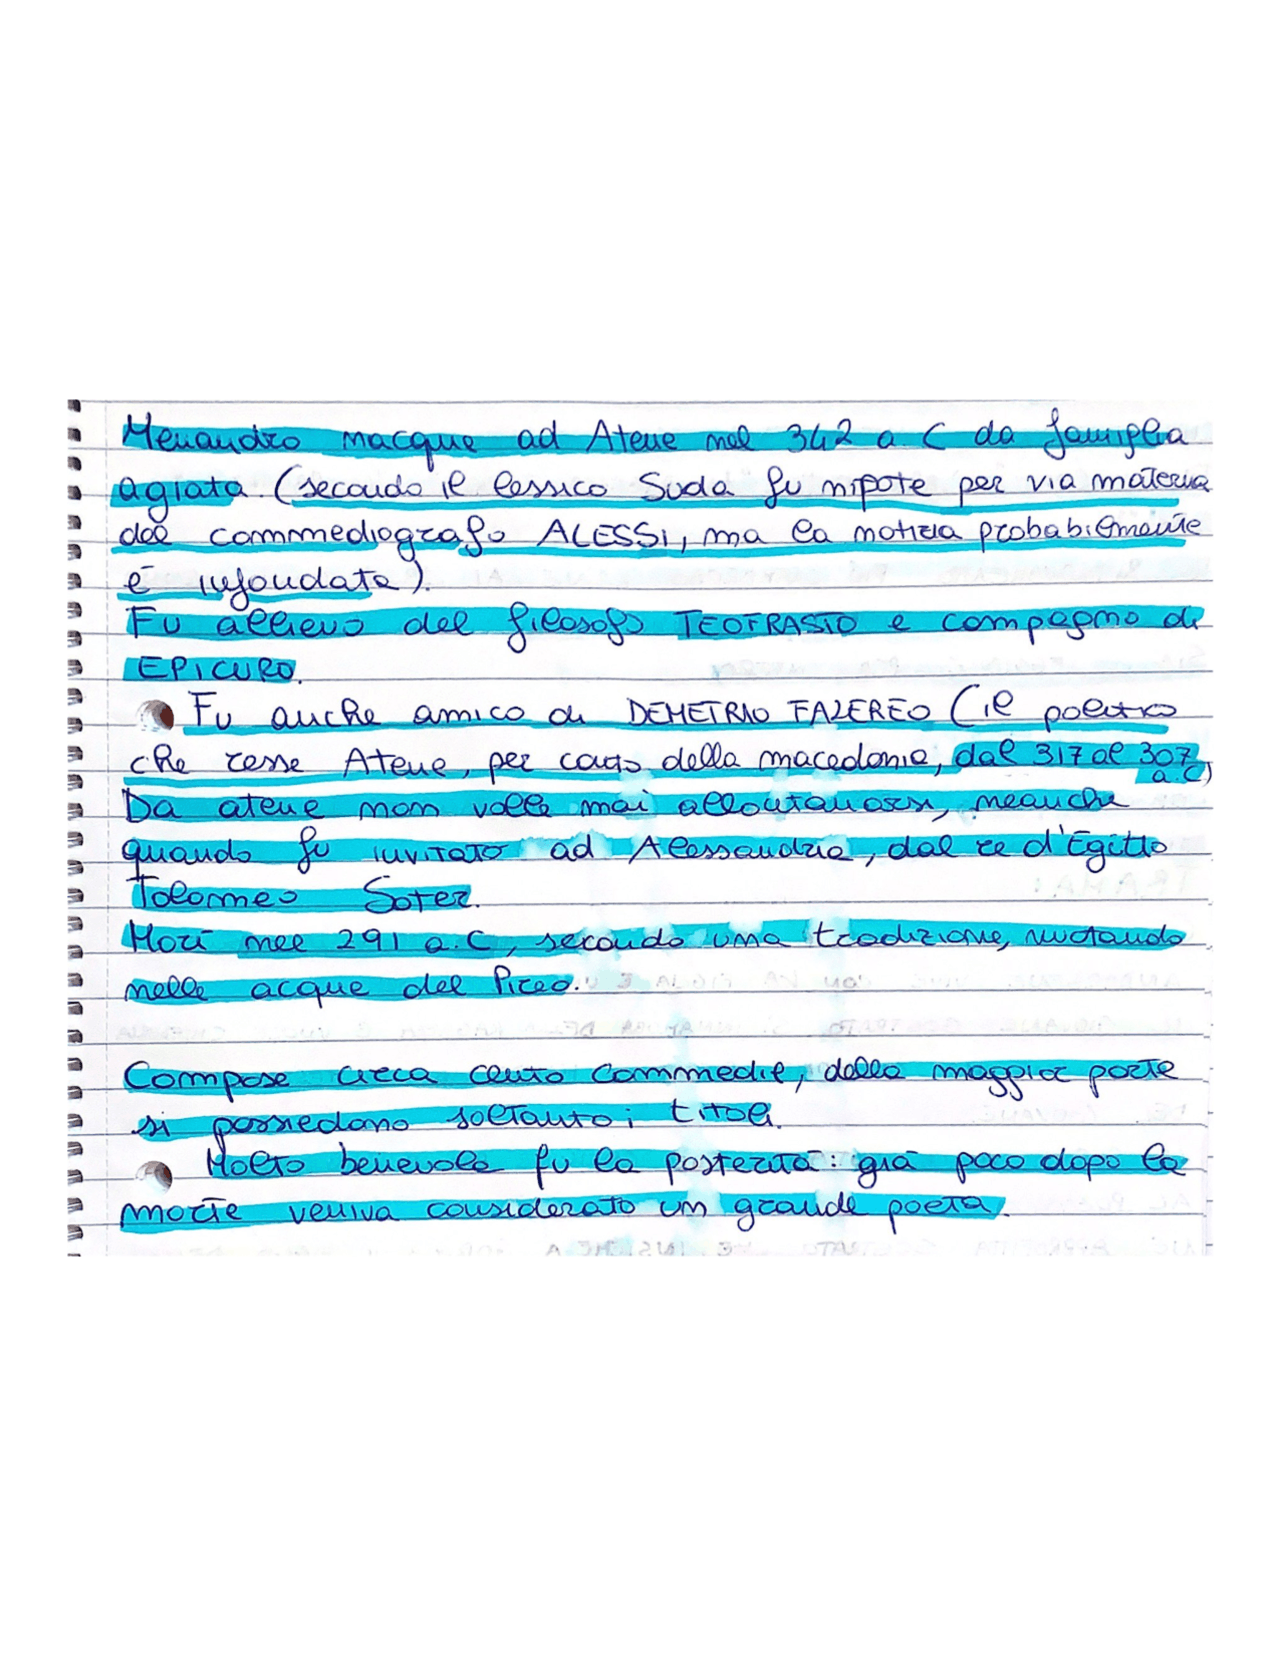 Menandro nacque ad Atene nel 342 a C da famiglia
agiata (secondo il lessico Suda fu nipote per via materna
del commediografo ALESSI, ma la notizia probabilmente
è infondata).
Fu allievo del filosofo TEOFRASTO e compagno di
EPICURO.
Fu anche amico di DEMETRIO FALEREO (il politico
che resse Atene, per conto della macedonia, dal 317 al 307
a.C)
Da atene non volle mai allontanarsi, neanche
quando fu invitato ad Alessandria, dal re d'Egitto
Tolomeo Soter.
Morì nel 291 a.C, secondo una tradizione, nuotando
nelle acque del Pireo.
Compose circa cento Commedie, della maggior parte
si possiedono soltanto i titoli.
Molto benevola fu la posterità: già poco dopo la
morte veniva considerato un grande poeta.